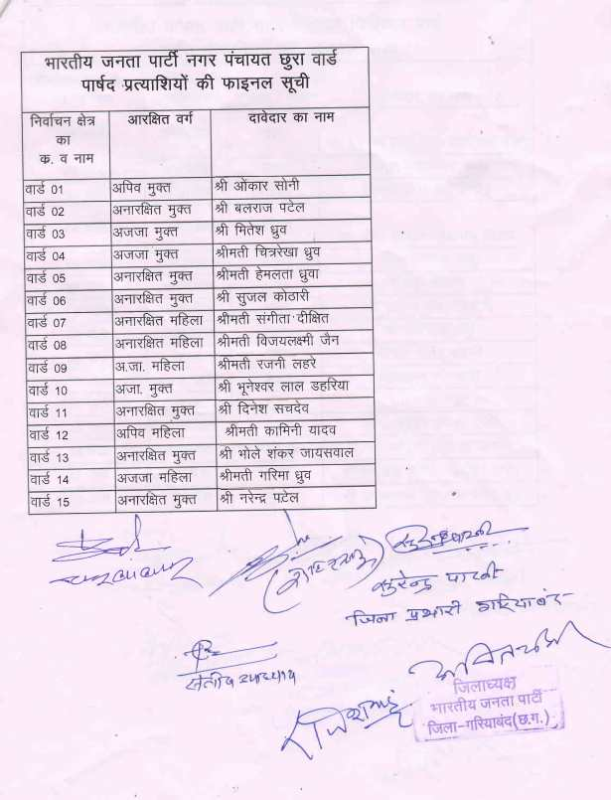 भारतीय जनता पार्टी नगर पंचायत छुरा वार्ड
पार्षद प्रत्याशियों की फाइनल सूची
निर्वाचन क्षेत्र का क. व नाम आरक्षित वर्ग दावेदार का नाम
वार्ड 01 अपिव मुक्त श्री ओंकार सोनी
वार्ड 02 अनारक्षित मुक्त श्री बलराज पटेल
वार्ड 03 अजजा मुक्त श्री मितेश ध्रुव
वार्ड 04 अजजा मुक्त श्रीमती चित्ररेखा ध्रुव
वार्ड 05 अनारक्षित मुक्त श्रीमती हेमलता ध्रुवा
वार्ड 06 अनारक्षित मुक्त श्री सुजल कोठारी
वार्ड 07 अनारक्षित महिला श्रीमती संगीता दीक्षित
वार्ड 08 अनारक्षित महिला श्रीमती विजयलक्ष्मी जैन
वार्ड 09 अ.जा. महिला श्रीमती रजनी लहरे
वार्ड 10 अजा. मुक्त श्री भूनेश्वर लाल डहरिया
वार्ड 11 अनारक्षित मुक्त श्री दिनेश सचदेव
वार्ड 12 अपिव महिला श्रीमती कामिनी यादव
वार्ड 13 अनारक्षित मुक्त श्री भोले शंकर जायसवाल
वार्ड 14 अजजा महिला श्रीमती गरिमा ध्रुव
वार्ड 15 अनारक्षित मुक्त श्री नरेन्द्र पटेल
जिला प्रभारी गरियाबंद
जिलाध्यक्ष
भारतीय जनता पार्टी
जिला-गरियाबंद(छ.ग.)